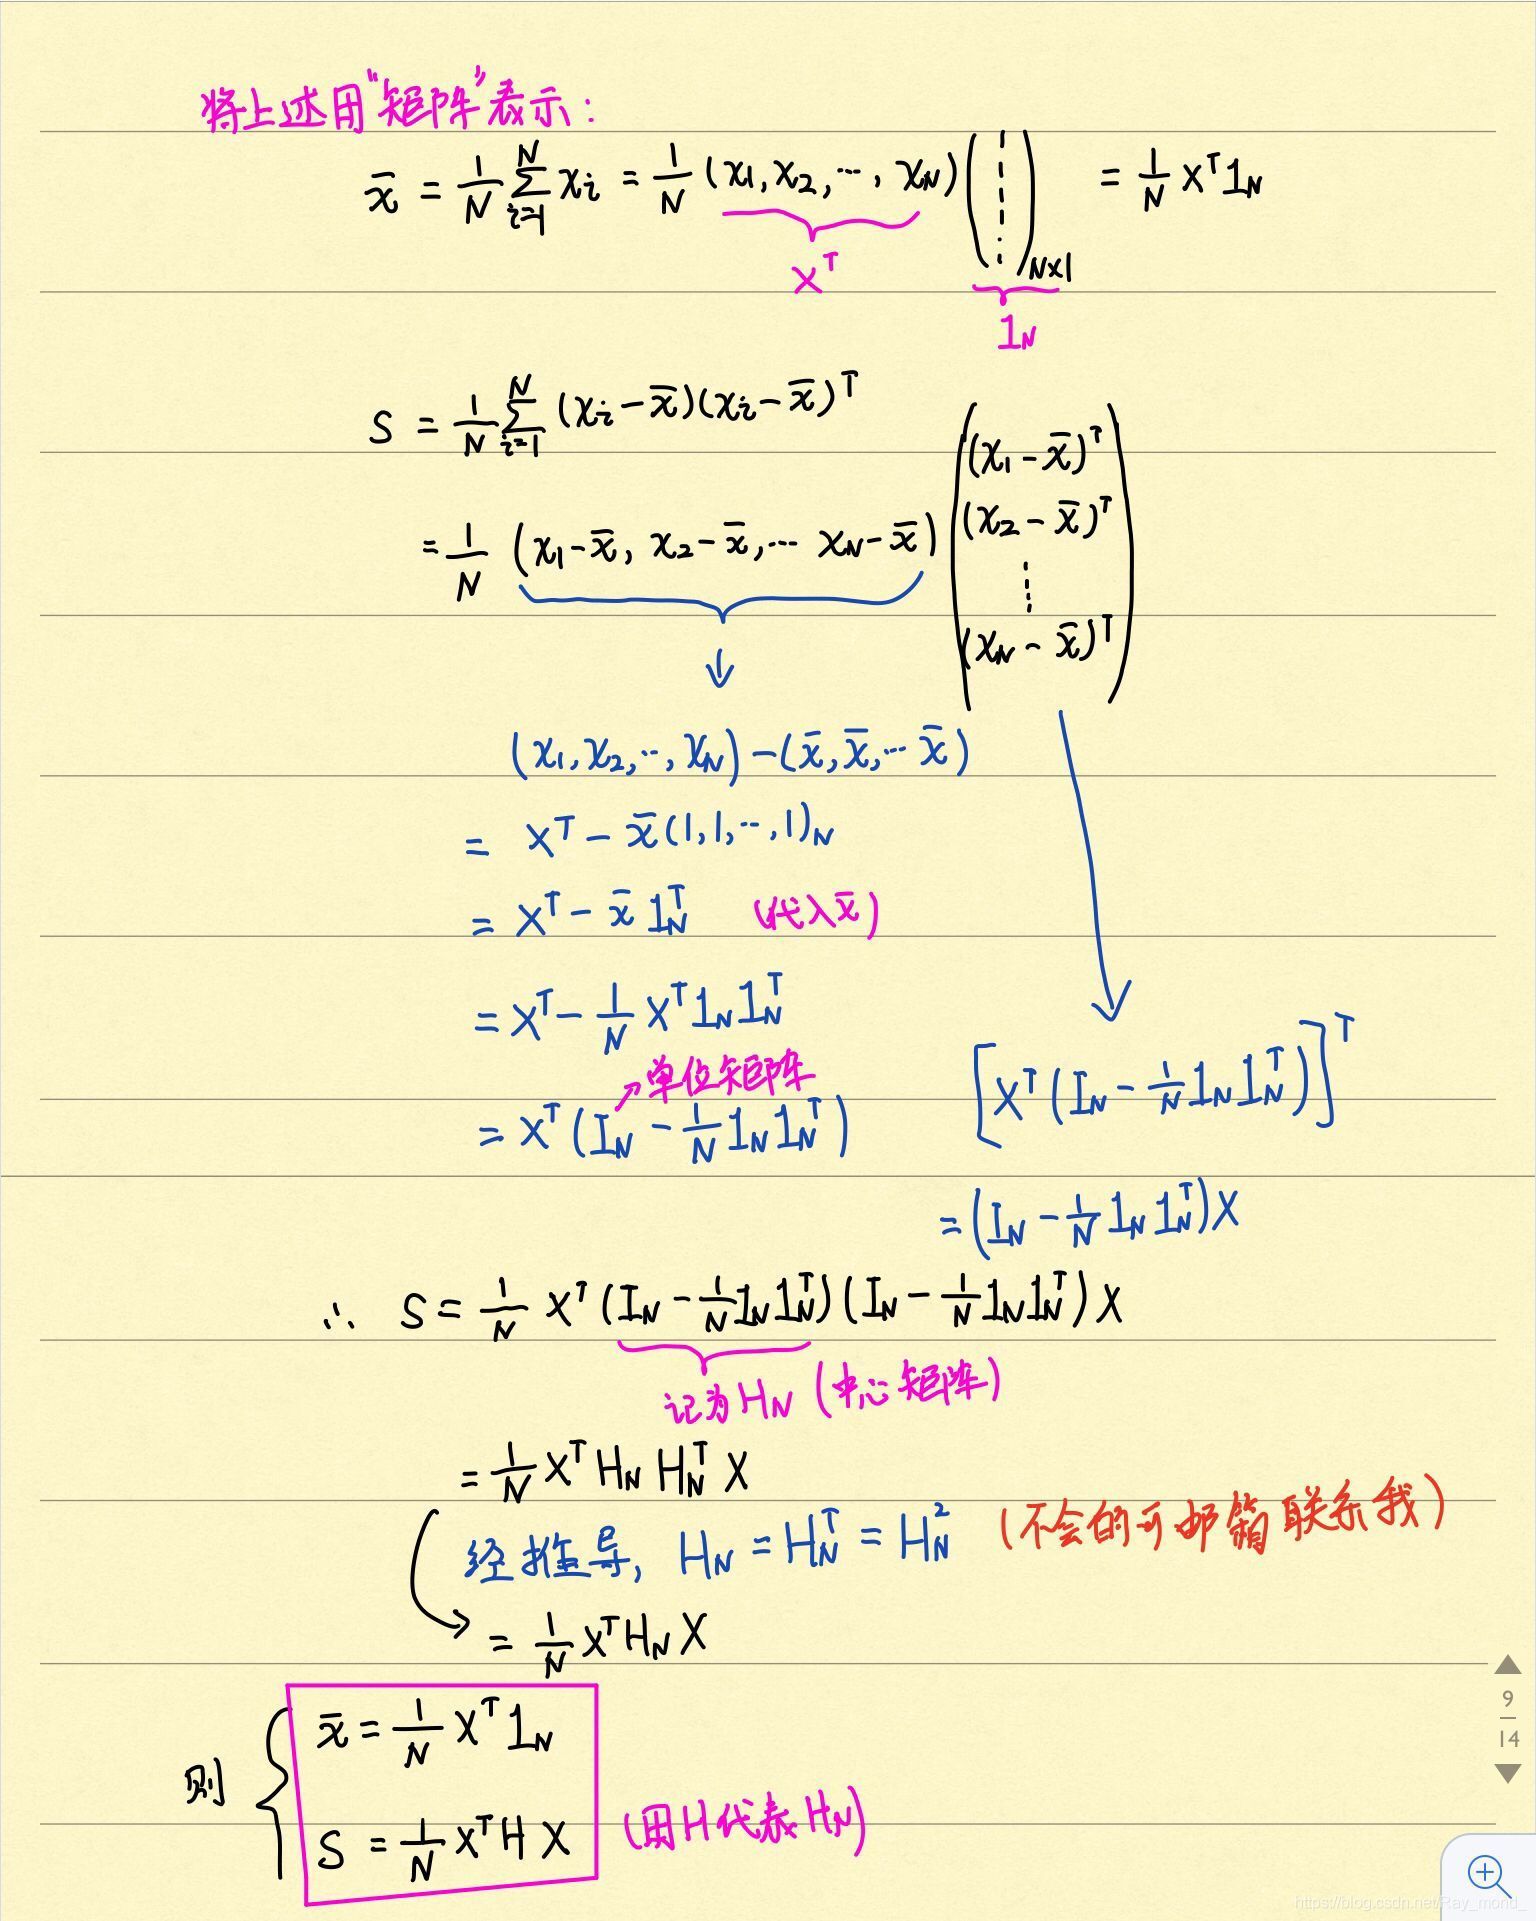 将上述用"矩阵"表示:
x̄ = 1/N ∑_{i=1}^{N} xᵢ = 1/N (x₁, x₂, ⋯, x_N) ( ⋮ )_{N×1} = 1/N Xᵀ 1_N
Xᵀ
1_N
S = 1/N ∑_{i=1}^{N} (xᵢ - x̄)(xᵢ - x̄)ᵀ
= 1/N (x₁ - x̄, x₂ - x̄, ⋯ x_N - x̄)
(x₁ - x̄)ᵀ
(x₂ - x̄)ᵀ
⋮
(x_N - x̄)ᵀ
↓
(x₁, x₂, ⋯, x_N) - (x̄, x̄, ⋯ x̄)
= Xᵀ - x̄ (1, 1, ⋯, 1)_N
= Xᵀ - x̄ 1_Nᵀ (代入x̄)
= Xᵀ - 1/N Xᵀ 1_N 1_Nᵀ
↗单位矩阵
= Xᵀ (I_N - 1/N 1_N 1_Nᵀ)
[Xᵀ (I_N - 1/N 1_N 1_Nᵀ)]ᵀ
= (I_N - 1/N 1_N 1_Nᵀ) X
∴ S = 1/N Xᵀ (I_N - 1/N 1_N 1_Nᵀ)(I_N - 1/N 1_N 1_Nᵀ) X
记为 H_N (中心矩阵)
= 1/N Xᵀ H_N H_Nᵀ X
经推导, H_N = H_Nᵀ = H_N² (不会的可邮箱联系我)
= 1/N Xᵀ H_N X
则
x̄ = 1/N Xᵀ 1_N
S = 1/N Xᵀ H X (用H代表H_N)
9
14
https://blog.csdn.net/Ray_mond_